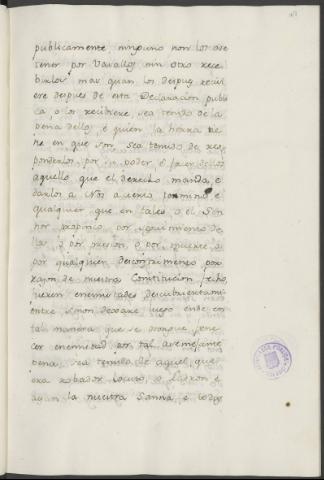 publicamente ninguno non los ose
tener por Vasallos nin otro rece-
birlos, mas quan los despues recivi
ere despues de esta Declaracion publi
ca, o los recibiere sea tenido de la
pena dello, e quien la tierra tie
ne en que son, sea tenido de res
ponderlos por su poder é facer dellos
aquello que el derecho manda, e
darlos a Nos a cierto termino e
qualquier que en tales o el Señ
hor propinco por seguimiento de
las, o por prision, o por muerte, o
por qualquier descontamiento por
razon de nuestra Constitucion fecho,
enemistades descubiertami
entre si non deoaxe luego ende en
tal manera que se porque fene
cer enemistad por tal avenesame
pena, sea temida de aquel, que
era robador locuro, o Ladron e
ayan la nuestra Sanna, e todos